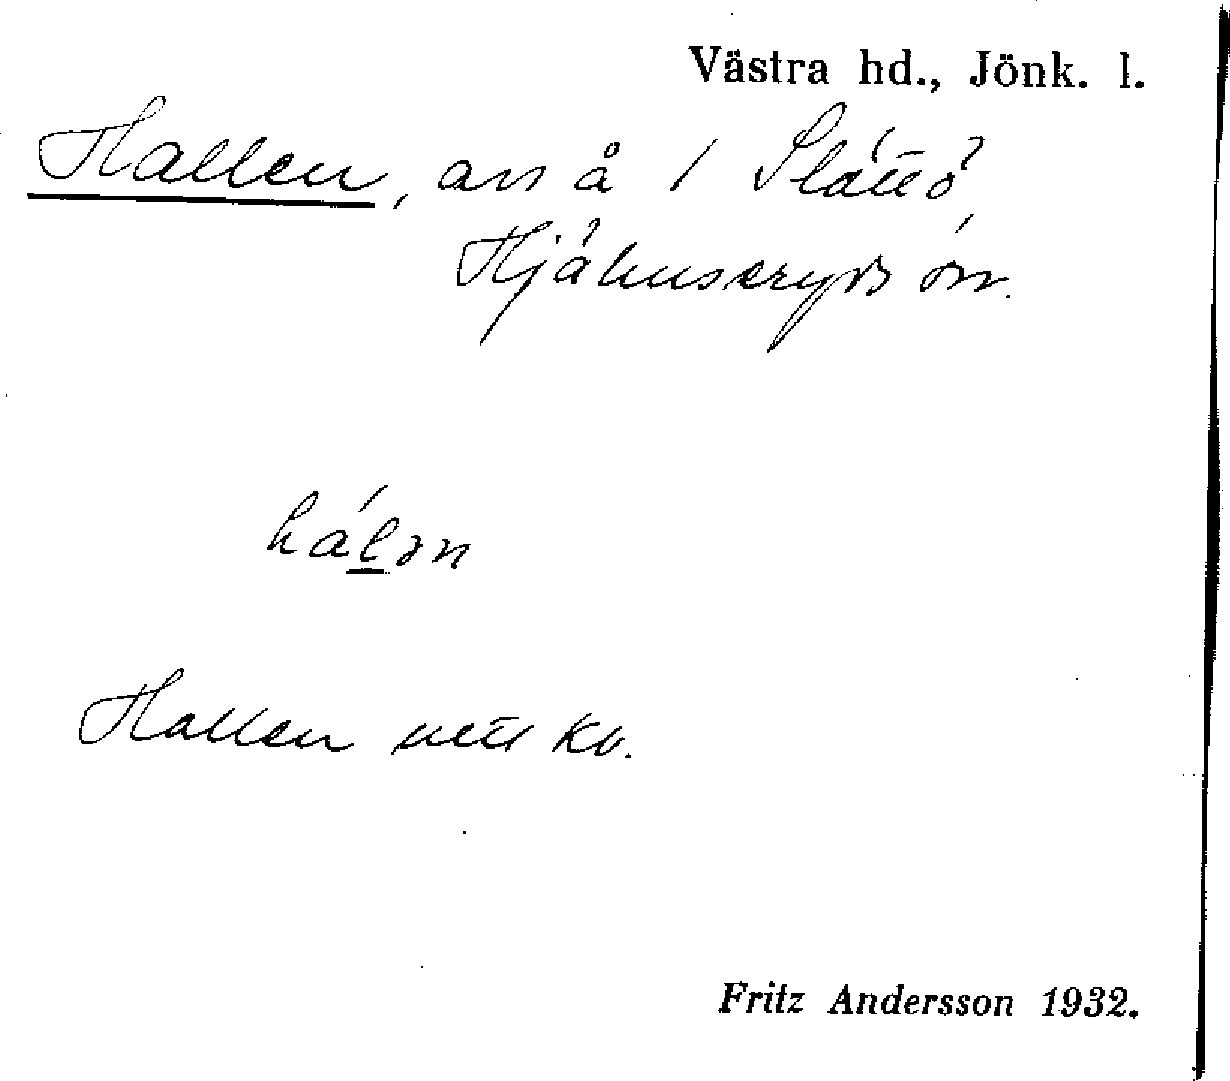 Västra hd., Jönk. l.
Hallen, avs å 1 Slättö
Hjälmseryds sn.
hálən
Hallen kv.
Fritz Andersson 1932.